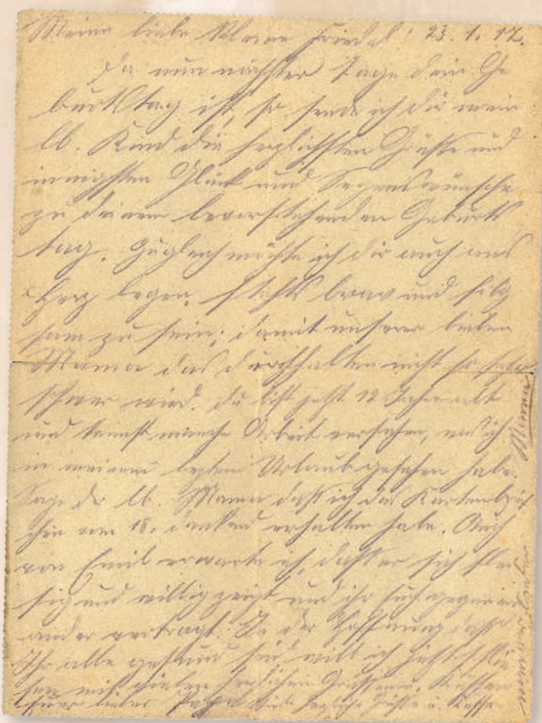 Meine liebe kleine Friedel! 23. 1. 17.
Da nun nächster Tage dein Ge
burtstag ist, so sende ich dir mein
lb. Kind die herzlichsten Grüße und
innigsten Glück und Segenswünsche
zu deinem bevorstehenden Geburts
tag. Zugleich möchte ich dir auch ans
Herz legen, stehts brav und folg
sam zu sein; damit unserer lieben
Mama das durchhalten nicht so sehr
schwer wird. du bist jetzt 12 Jahre alt
und kannst manche Arbeit versehen, was ich
in meinem letzten Urlaub gesehen habe.
Sage der lb. Mama daß ich das Kartenbrief
chen vom 18. dankend erhalten habe. Auch
von Emil erwarte ich, daß er sich flei
ßig und willig zeigt und ihr euch gegenein
ander vertragt. In der Hoffnung daß
Ihr alle gesund seid will ich jetzt schlie
ßen mit vielen herzlichen Grüßen u. Küssen
Euer lieber Papa herzliche Grüße u. Küsse
Mama